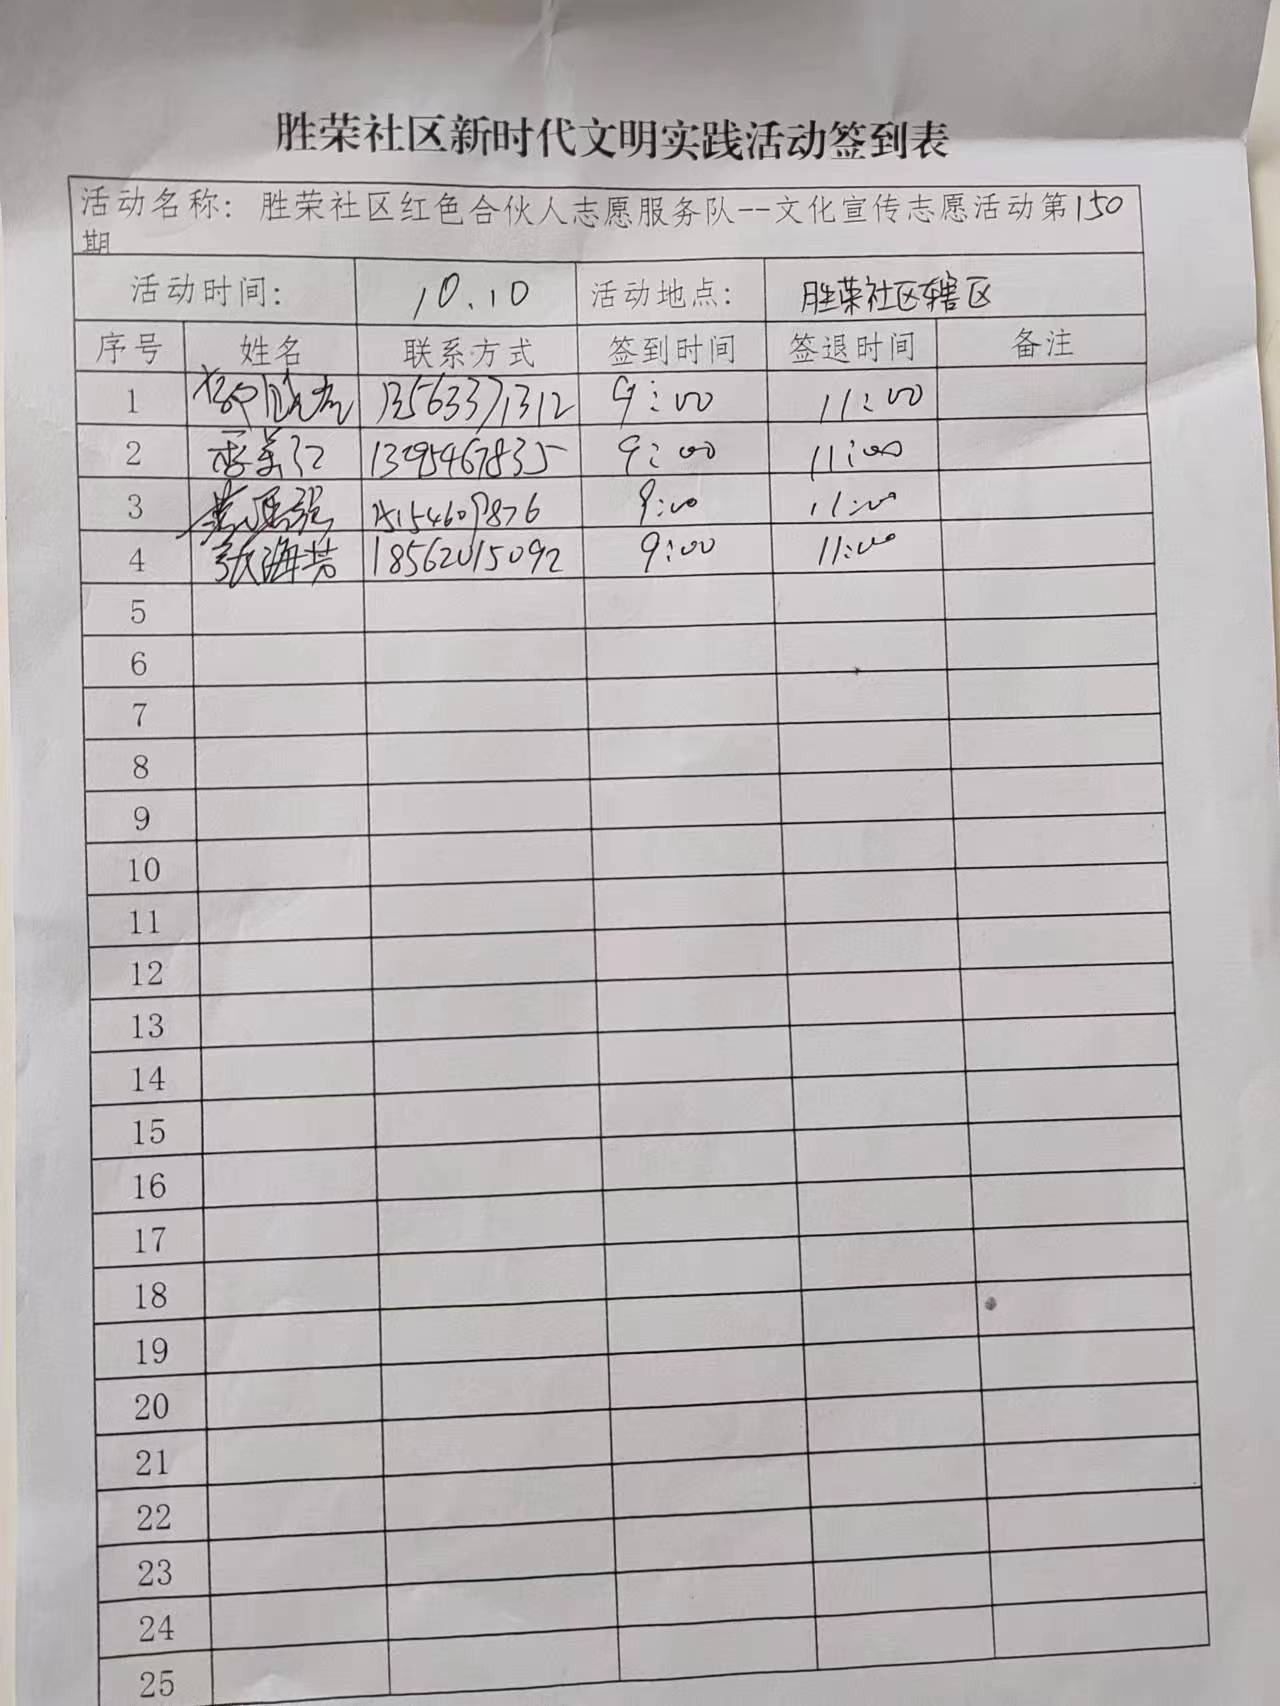 胜荣社区新时代文明实践活动签到表
活动名称：胜荣社区红色合伙人志愿服务队--文化宣传志愿活动第150
期
活动时间： 10.10 活动地点： 胜荣社区辖区
序号 姓名 联系方式 签到时间 签退时间 备注
1 13563371312 9:00 11:00
2 13954467835 9:00 11:00
3 15154609876 9:00 11:00
4 张海芳 18562015092 9:00 11:00
5
6
7
8
9
10
11
12
13
14
15
16
17
18
19
20
21
22
23
24
25